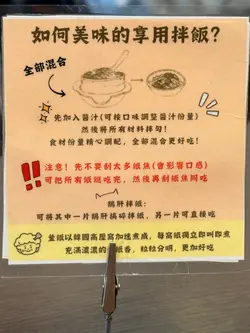 如何美味的享用拌飯?
全部混合
先加入醬汁(可按口味調整醬汁份量)
然後將所有材料拌勻!
食材份量精心調配,全部混合更好吃!
注意!先不要刮太多飯焦(會影響口感)
可把所有飯飯吃完,然後再刮飯焦同吃
鵝肝拌飯:
可將其中一片鵝肝搞碎拌飯,另一片可直接吃
釜飯以韓國高壓窩加速煮成,每窩飯獨立即叫即煮
充滿濃濃的飯香,粒粒分明,更加好吃